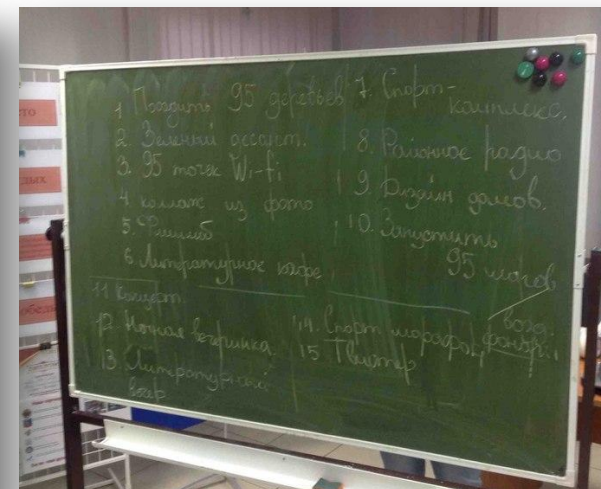 1 Посадить 95 деревьев
2. Зеленый десант.
3. 95 точек Wi-fi
4 коллаж из фото
5. Флешмоб
6. Литературное кафе
7. Спорт-
комплекс.
8. Районное радио
9. Дизайн домов.
10. Запустить
95 шаров
11 Концерт.
12. Ночная вечеринка
13. Литературный
вечер
14. Спорт марафон
15 Твистер
возд.
фонар.